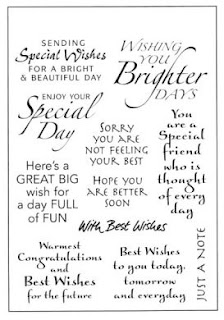 SENDING
Special Wishes
FOR A BRIGHT
& BEAUTIFUL DAY
WISHING
YOU
Brighter
DAYS
ENJOY YOUR
Special
Day
SORRY
YOU ARE
NOT FEELING
YOUR BEST
You
are a
Special
friend
who is
thought
of every
day
Here's a
GREAT BIG
wish for
a day FULL
of FUN
HOPE YOU
ARE BETTER
SOON
With Best Wishes
Warmest
Congratulations
and
Best Wishes
for the future
Best Wishes
to you today,
tomorrow
and everyday
JUST A NOTE